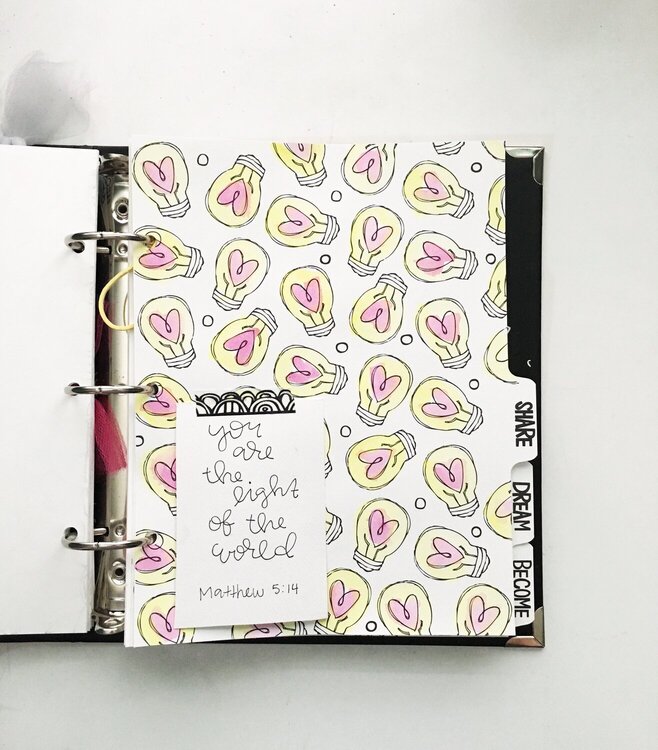 you
are
the
light
of the
world
Matthew 5:14
SHARE
DREAM
BECOME